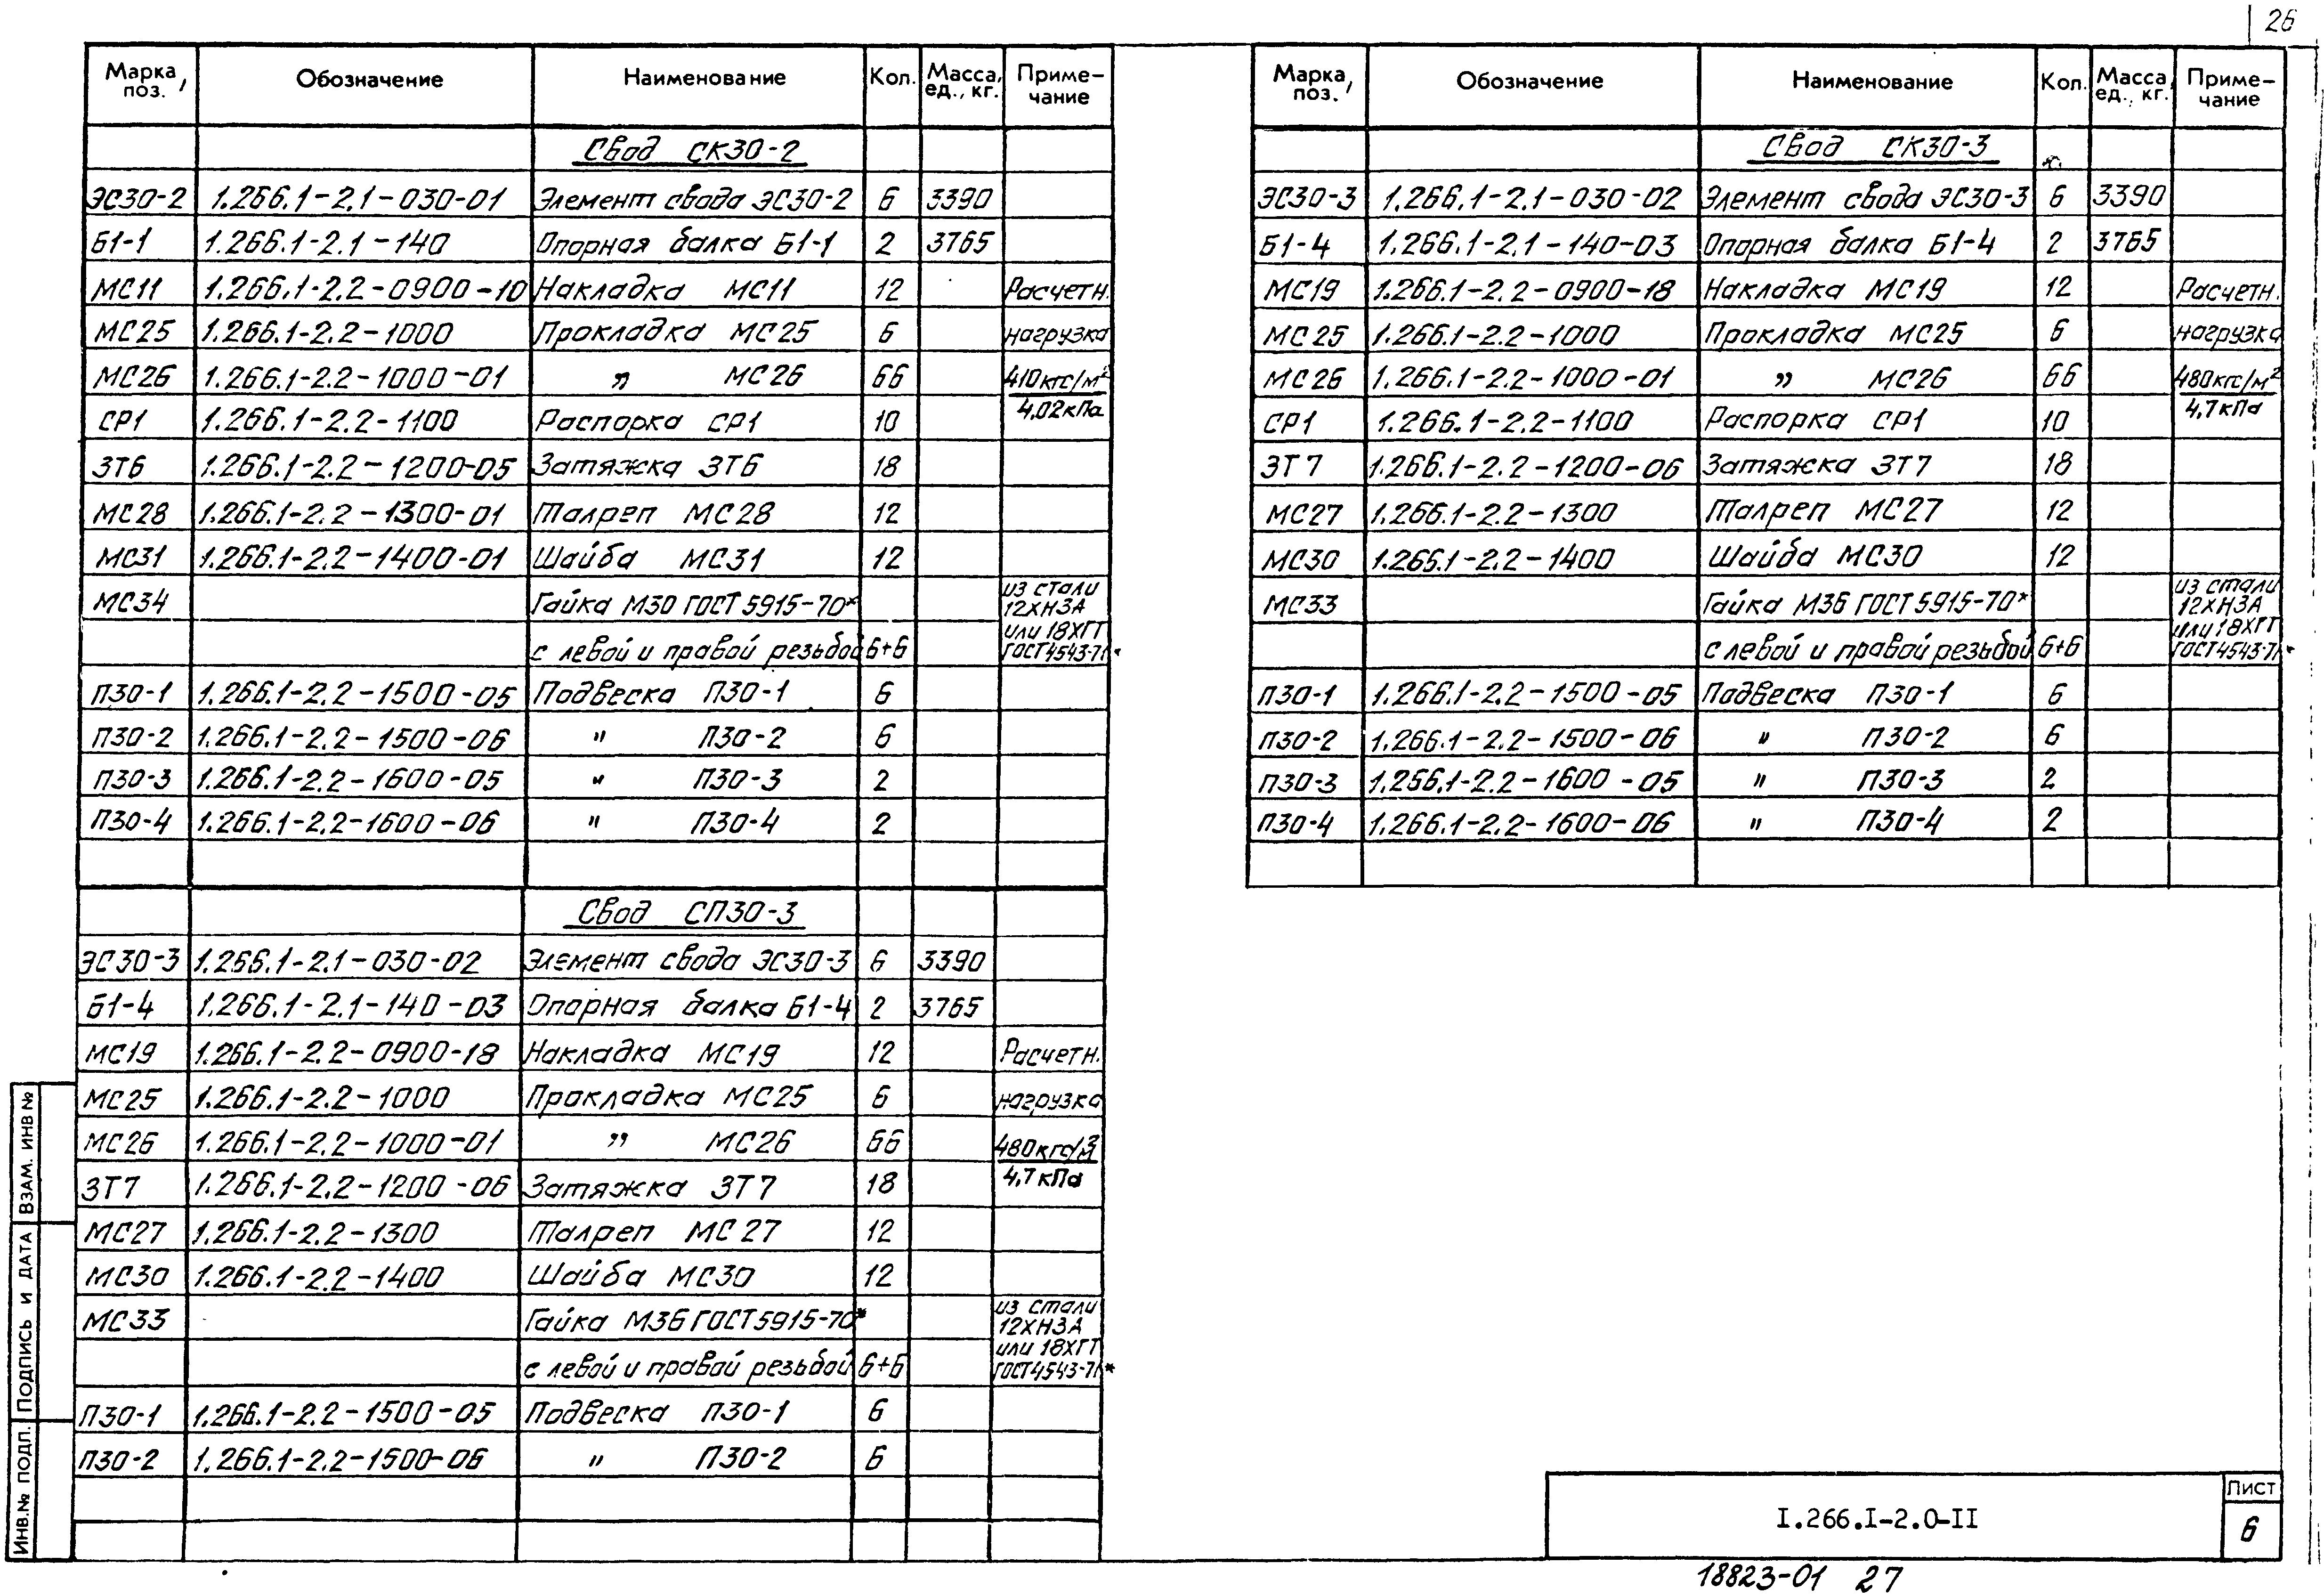 26
Марка, поз. Обозначение Наименование Кол. Масса, ед., кг. Приме-чание
Свод СК30-2
ЭС30-2 1.266.1-2.1-030-01 Элемент свода ЭС30-2 6 3390
Б1-1 1.266.1-2.1-140 Опорная балка Б1-1 2 3765
МС11 1.266.1-2.2-0900-10 Накладка МС11 12 Расчетн.
МС25 1.266.1-2.2-1000 Прокладка МС25 6 нагрузка
МС26 1.266.1-2.2-1000-01 " МС26 66 410кгс/м²
СР1 1.266.1-2.2-1100 Распорка СР1 10 4,02кПа
ЗТ6 1.266.1-2.2-1200-05 Затяжка ЗТ6 18
МС28 1.266.1-2.2-1300-01 Талреп МС28 12
МС31 1.266.1-2.2-1400-01 Шайба МС31 12
МС34 Гайка М30 ГОСТ 5915-70* из стали 12ХН3А
с левой и правой резьбой 6+6 или 18ХГТ ГОСТ4543-71*
П30-1 1.266.1-2.2-1500-05 Подвеска П30-1 6
П30-2 1.266.1-2.2-1500-06 " П30-2 6
П30-3 1.266.1-2.2-1600-05 " П30-3 2
П30-4 1.266.1-2.2-1600-06 " П30-4 2
Свод СП30-3
ЭС30-3 1.266.1-2.1-030-02 Элемент свода ЭС30-3 6 3390
Б1-4 1.266.1-2.1-140-03 Опорная балка Б1-4 2 3765
МС19 1.266.1-2.2-0900-18 Накладка МС19 12 Расчетн.
МС25 1.266.1-2.2-1000 Прокладка МС25 6 нагрузка
МС26 1.266.1-2.2-1000-01 " МС26 66 480кгс/м²
ЗТ7 1.266.1-2.2-1200-06 Затяжка ЗТ7 18 4,7кПа
МС27 1.266.1-2.2-1300 Талреп МС27 12
МС30 1.266.1-2.2-1400 Шайба МС30 12
МС33 Гайка М36 ГОСТ 5915-70* из стали 12ХН3А
с левой и правой резьбой 6+6 или 18ХГТ ГОСТ4543-71*
П30-1 1.266.1-2.2-1500-05 Подвеска П30-1 6
П30-2 1.266.1-2.2-1500-06 " П30-2 6
Марка, поз. Обозначение Наименование Кол. Масса, ед., кг. Приме-чание
Свод СК30-3
ЭС30-3 1.266.1-2.1-030-02 Элемент свода ЭС30-3 6 3390
Б1-4 1.266.1-2.1-140-03 Опорная балка Б1-4 2 3765
МС19 1.266.1-2.2-0900-18 Накладка МС19 12 Расчетн.
МС25 1.266.1-2.2-1000 Прокладка МС25 6 нагрузка
МС26 1.266.1-2.2-1000-01 " МС26 66 480кгс/м²
СР1 1.266.1-2.2-1100 Распорка СР1 10 4,7кПа
ЗТ7 1.266.1-2.2-1200-06 Затяжка ЗТ7 18
МС27 1.266.1-2.2-1300 Талреп МС27 12
МС30 1.265.1-2.2-1400 Шайба МС30 12
МС33 Гайка М36 ГОСТ 5915-70* из стали 12ХН3А
с левой и правой резьбой 6+6 или 18ХГТ ГОСТ4543-71*
П30-1 1.266.1-2.2-1500-05 Подвеска П30-1 6
П30-2 1.266.1-2.2-1500-06 " П30-2 6
П30-3 1.266.1-2.2-1600-05 " П30-3 2
П30-4 1.266.1-2.2-1600-06 " П30-4 2
ИНВ.№ ПОДП. ПОДПИСЬ И ДАТА ВЗАМ. ИНВ №
I.266.I-2.0-II
Лист
6
18823-01 27